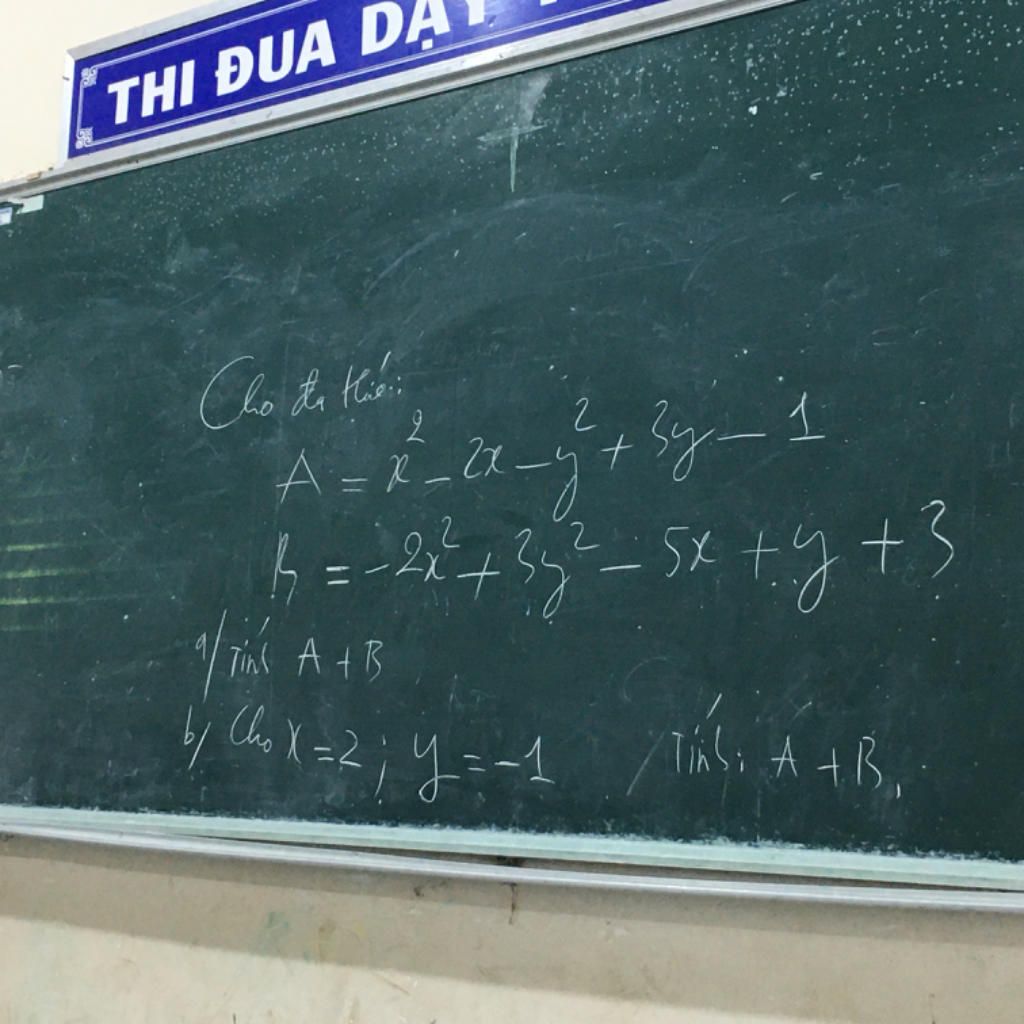 THI ĐUA DẠY
Cho đa thức:
A = x² - 2x - y² + 3y - 1
B = -2x² + 3y² - 5x + y + 3
a/ Tính A + B
b/ Cho x = 2 ; y = -1 Tính: A + B